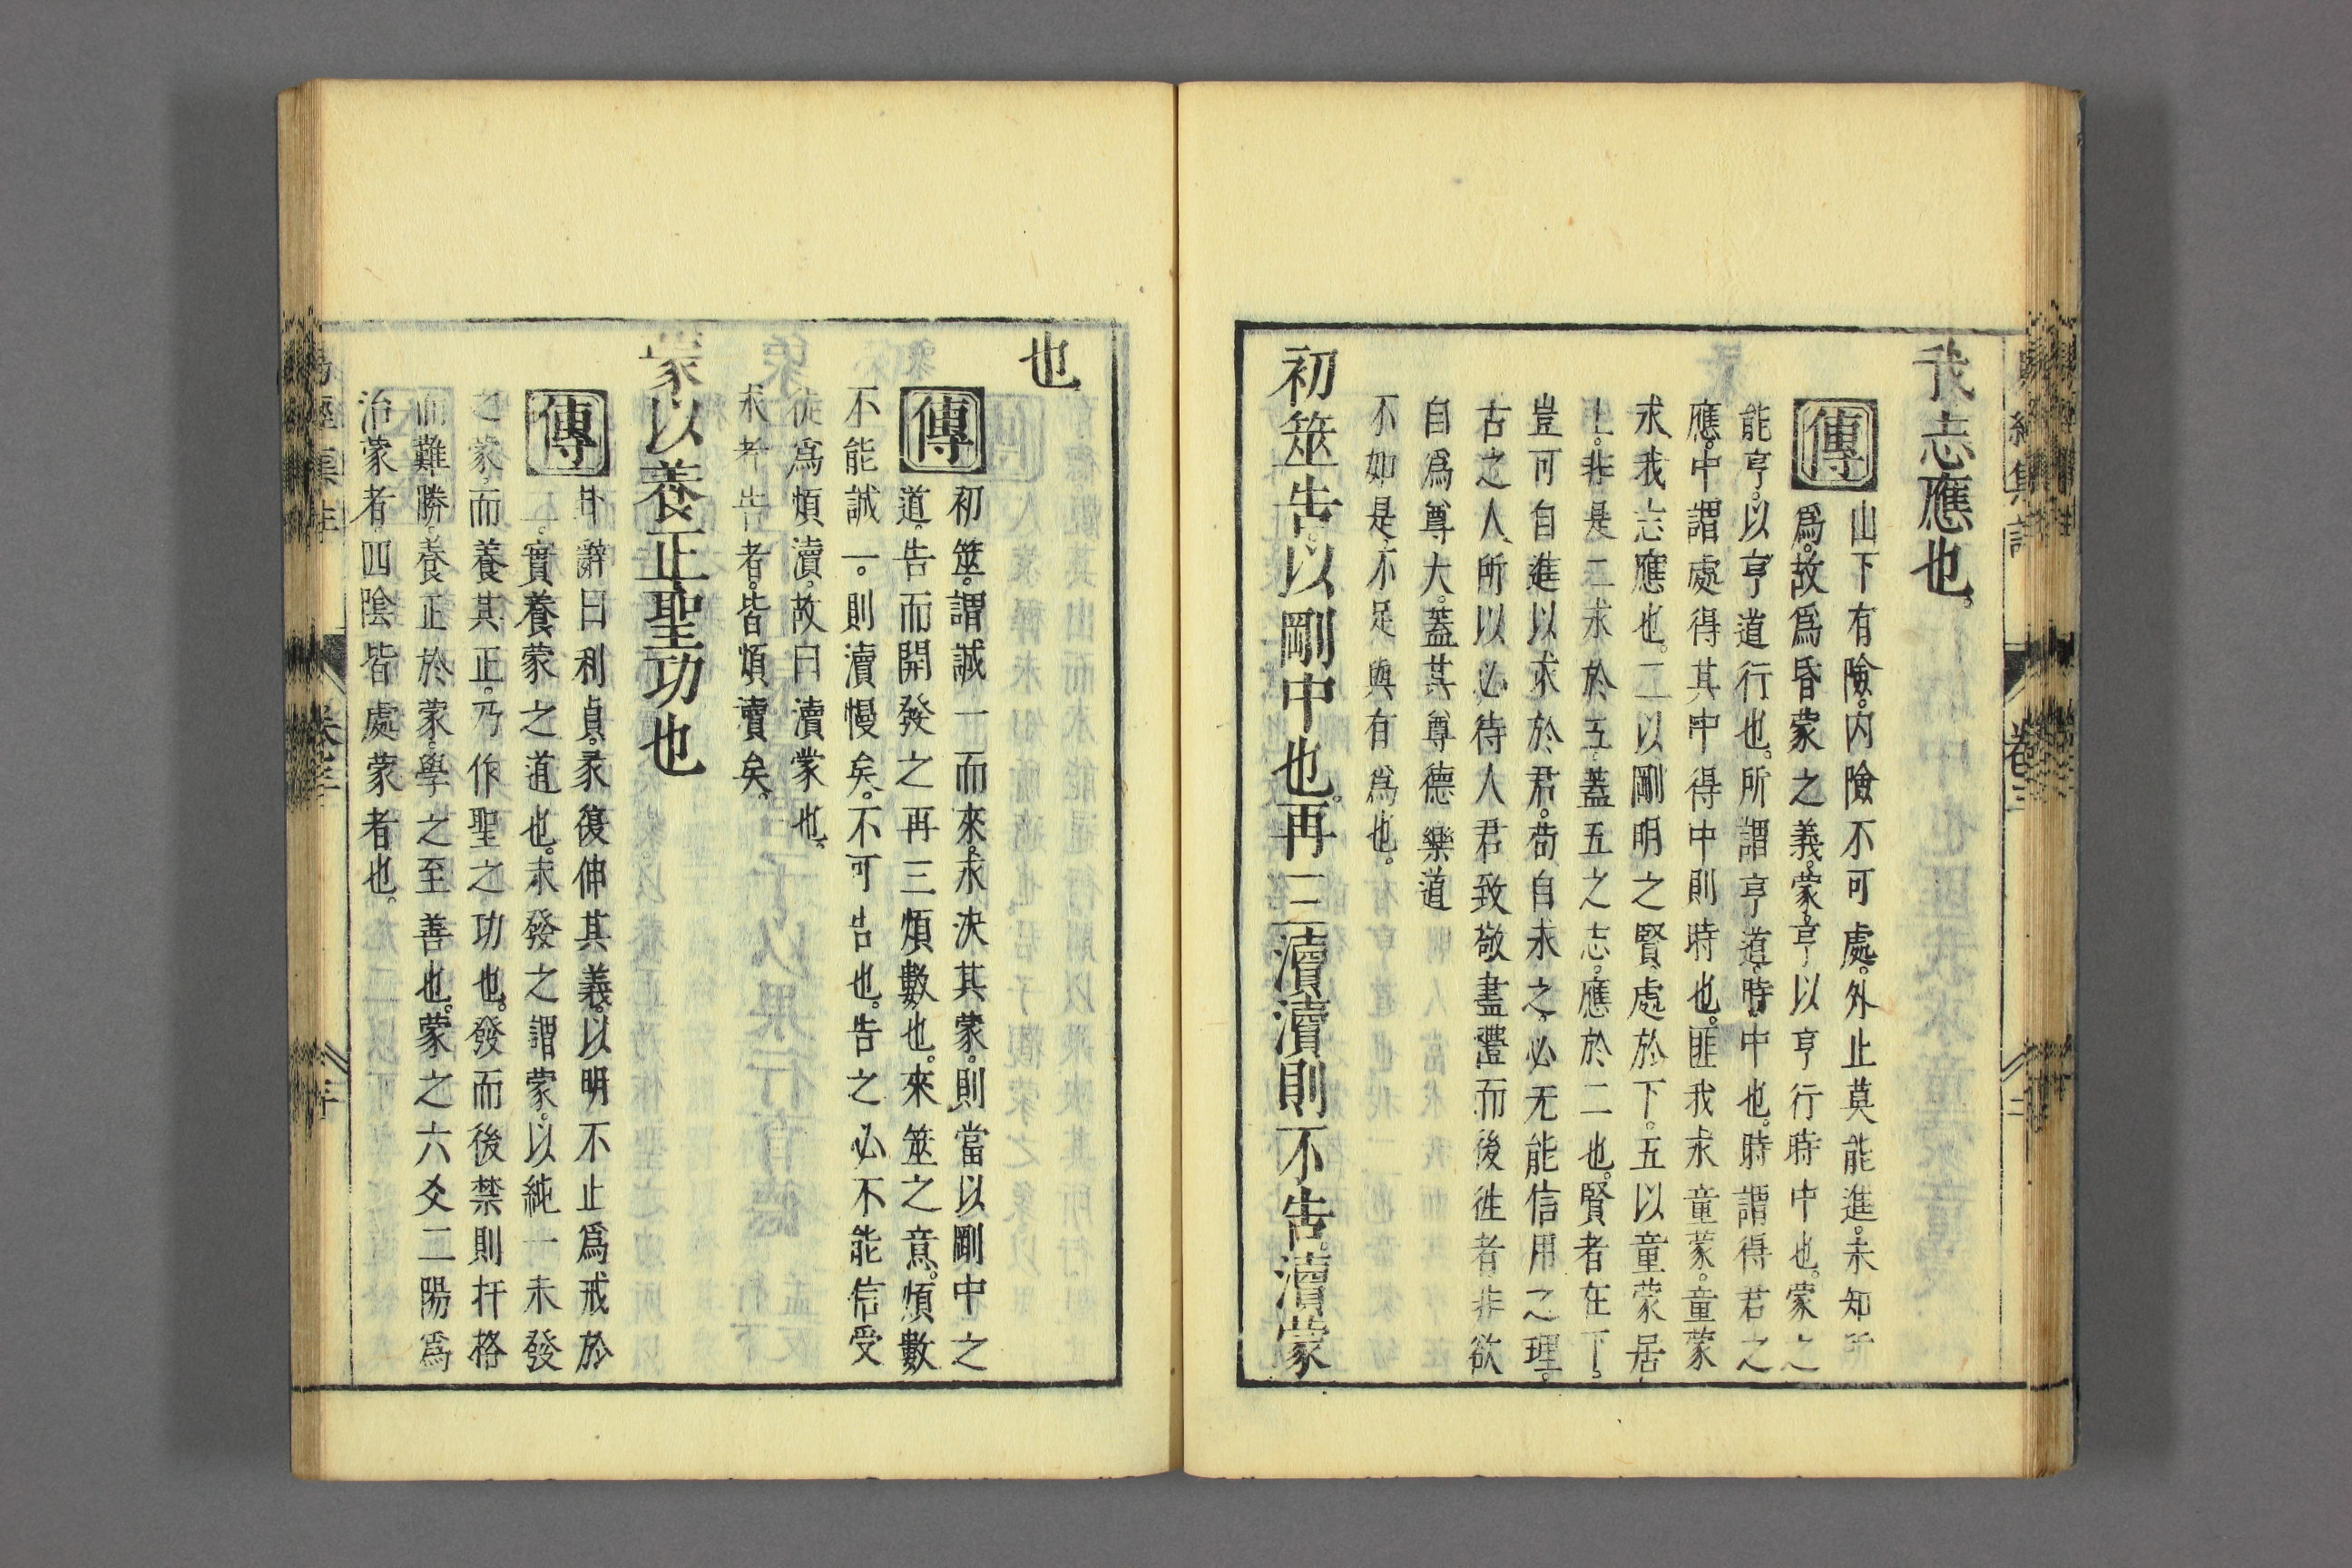 我志應也。
傳
山下有險。內險不可處。外止莫能進。未知所
爲。故爲昏蒙之義。蒙亨。以亨行時中也。蒙之
能亨。以亨道行也。所謂亨道。時中也。時謂得君之
應。中謂處得其中得中則時也。匪我求童蒙。童蒙
求我志應也。二以剛明之賢處於下。五以童蒙居
上。非是二求於五。蓋五之志。應於二也。賢者在下。
豈可自進以求於君。苟自求之。必无能信用之理。
古之人所以必待人君致敬盡禮而後徃者非欲
自爲尊大。蓋其尊德樂道
不如是。不足與有爲也。
初筮告。以剛中也。再三瀆瀆則不告。瀆蒙
也
傳
初筮。謂誠一而來。求決其蒙。則當以剛中之
道。告而開發之再三煩數也。來筮之意。煩數
不能誠一。則瀆慢矣。不可告也。告之必不能信受
徒爲煩瀆。故曰瀆蒙也
求者告者。皆煩瀆矣。
蒙以養正聖功也
傳
卦辭曰利貞。彖復伸其義。以明不止爲戒於
二。實養蒙之道也。未發之謂蒙。以純一未發
之蒙。而養其正。乃作聖之功也。發而後禁則扞格
而難勝。養正於蒙。學之至善也。蒙之六爻二陽爲
治蒙者四陰皆處蒙者也。